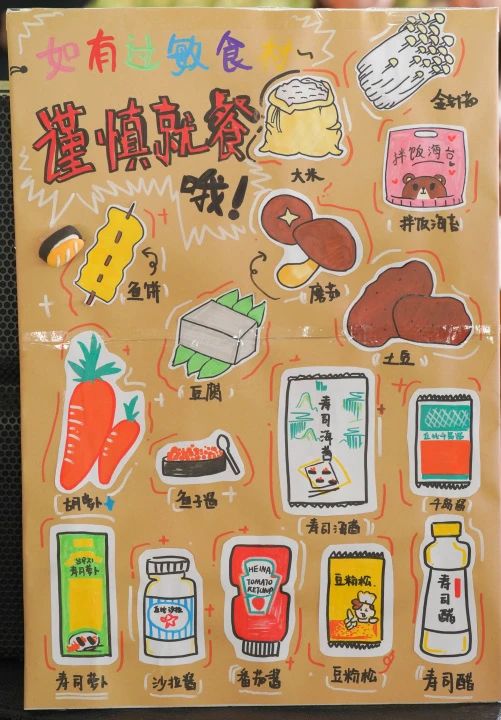 如有过敏食材~
谨慎就餐
哦!
金针菇
大米
拌饭海苔
拌饭海苔
鱼饼
蘑菇
土豆
豆腐
寿司海苔
胡萝卜
鱼子酱
千岛酱
寿司萝卜
HEINA
TOMATO
KETCHUP
豆粉松
寿司醋
寿司萝卜
沙拉酱
番茄酱
豆粉松
寿司醋